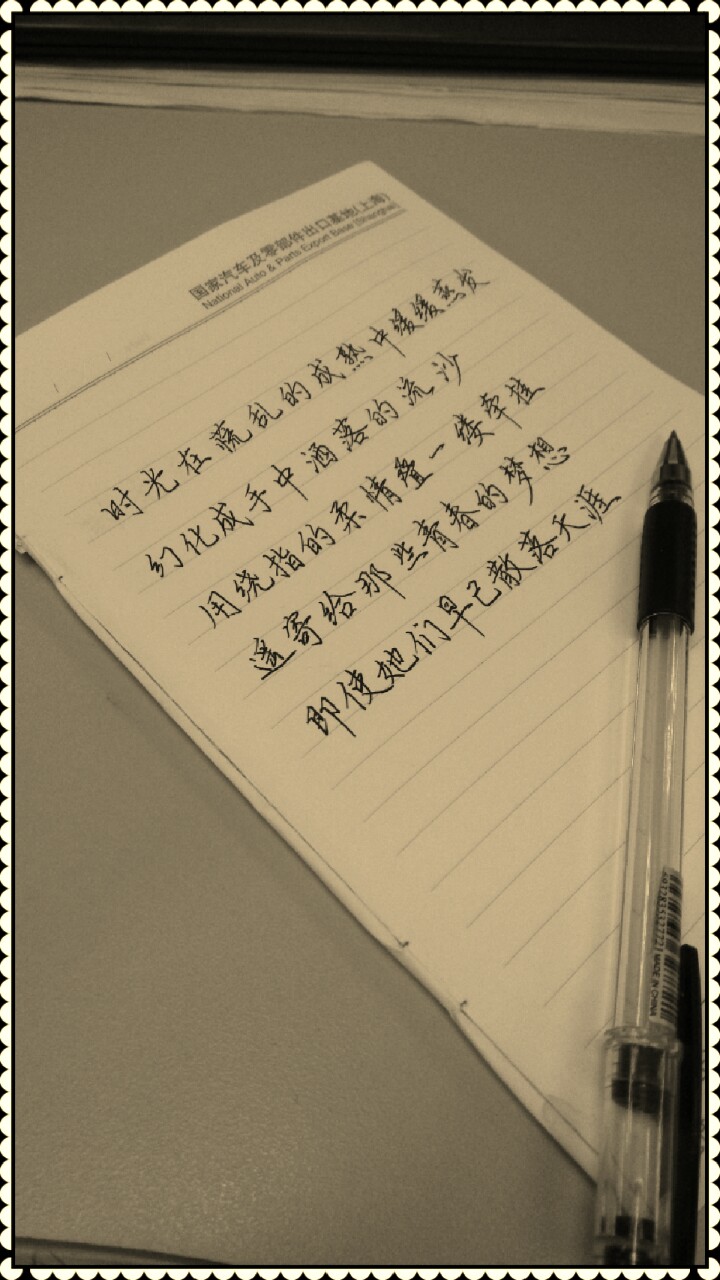 国家汽车及零部件出口基地(上海)
National Auto & Parts Export Base (Shanghai)
时光在 乱的成熟中缓缓蒸发
幻化成手中洒落的流沙
用绕指的柔情叠一缕牵挂
遥寄给那些青春的梦想
即使她们早已散落天涯
MADE IN CHINA